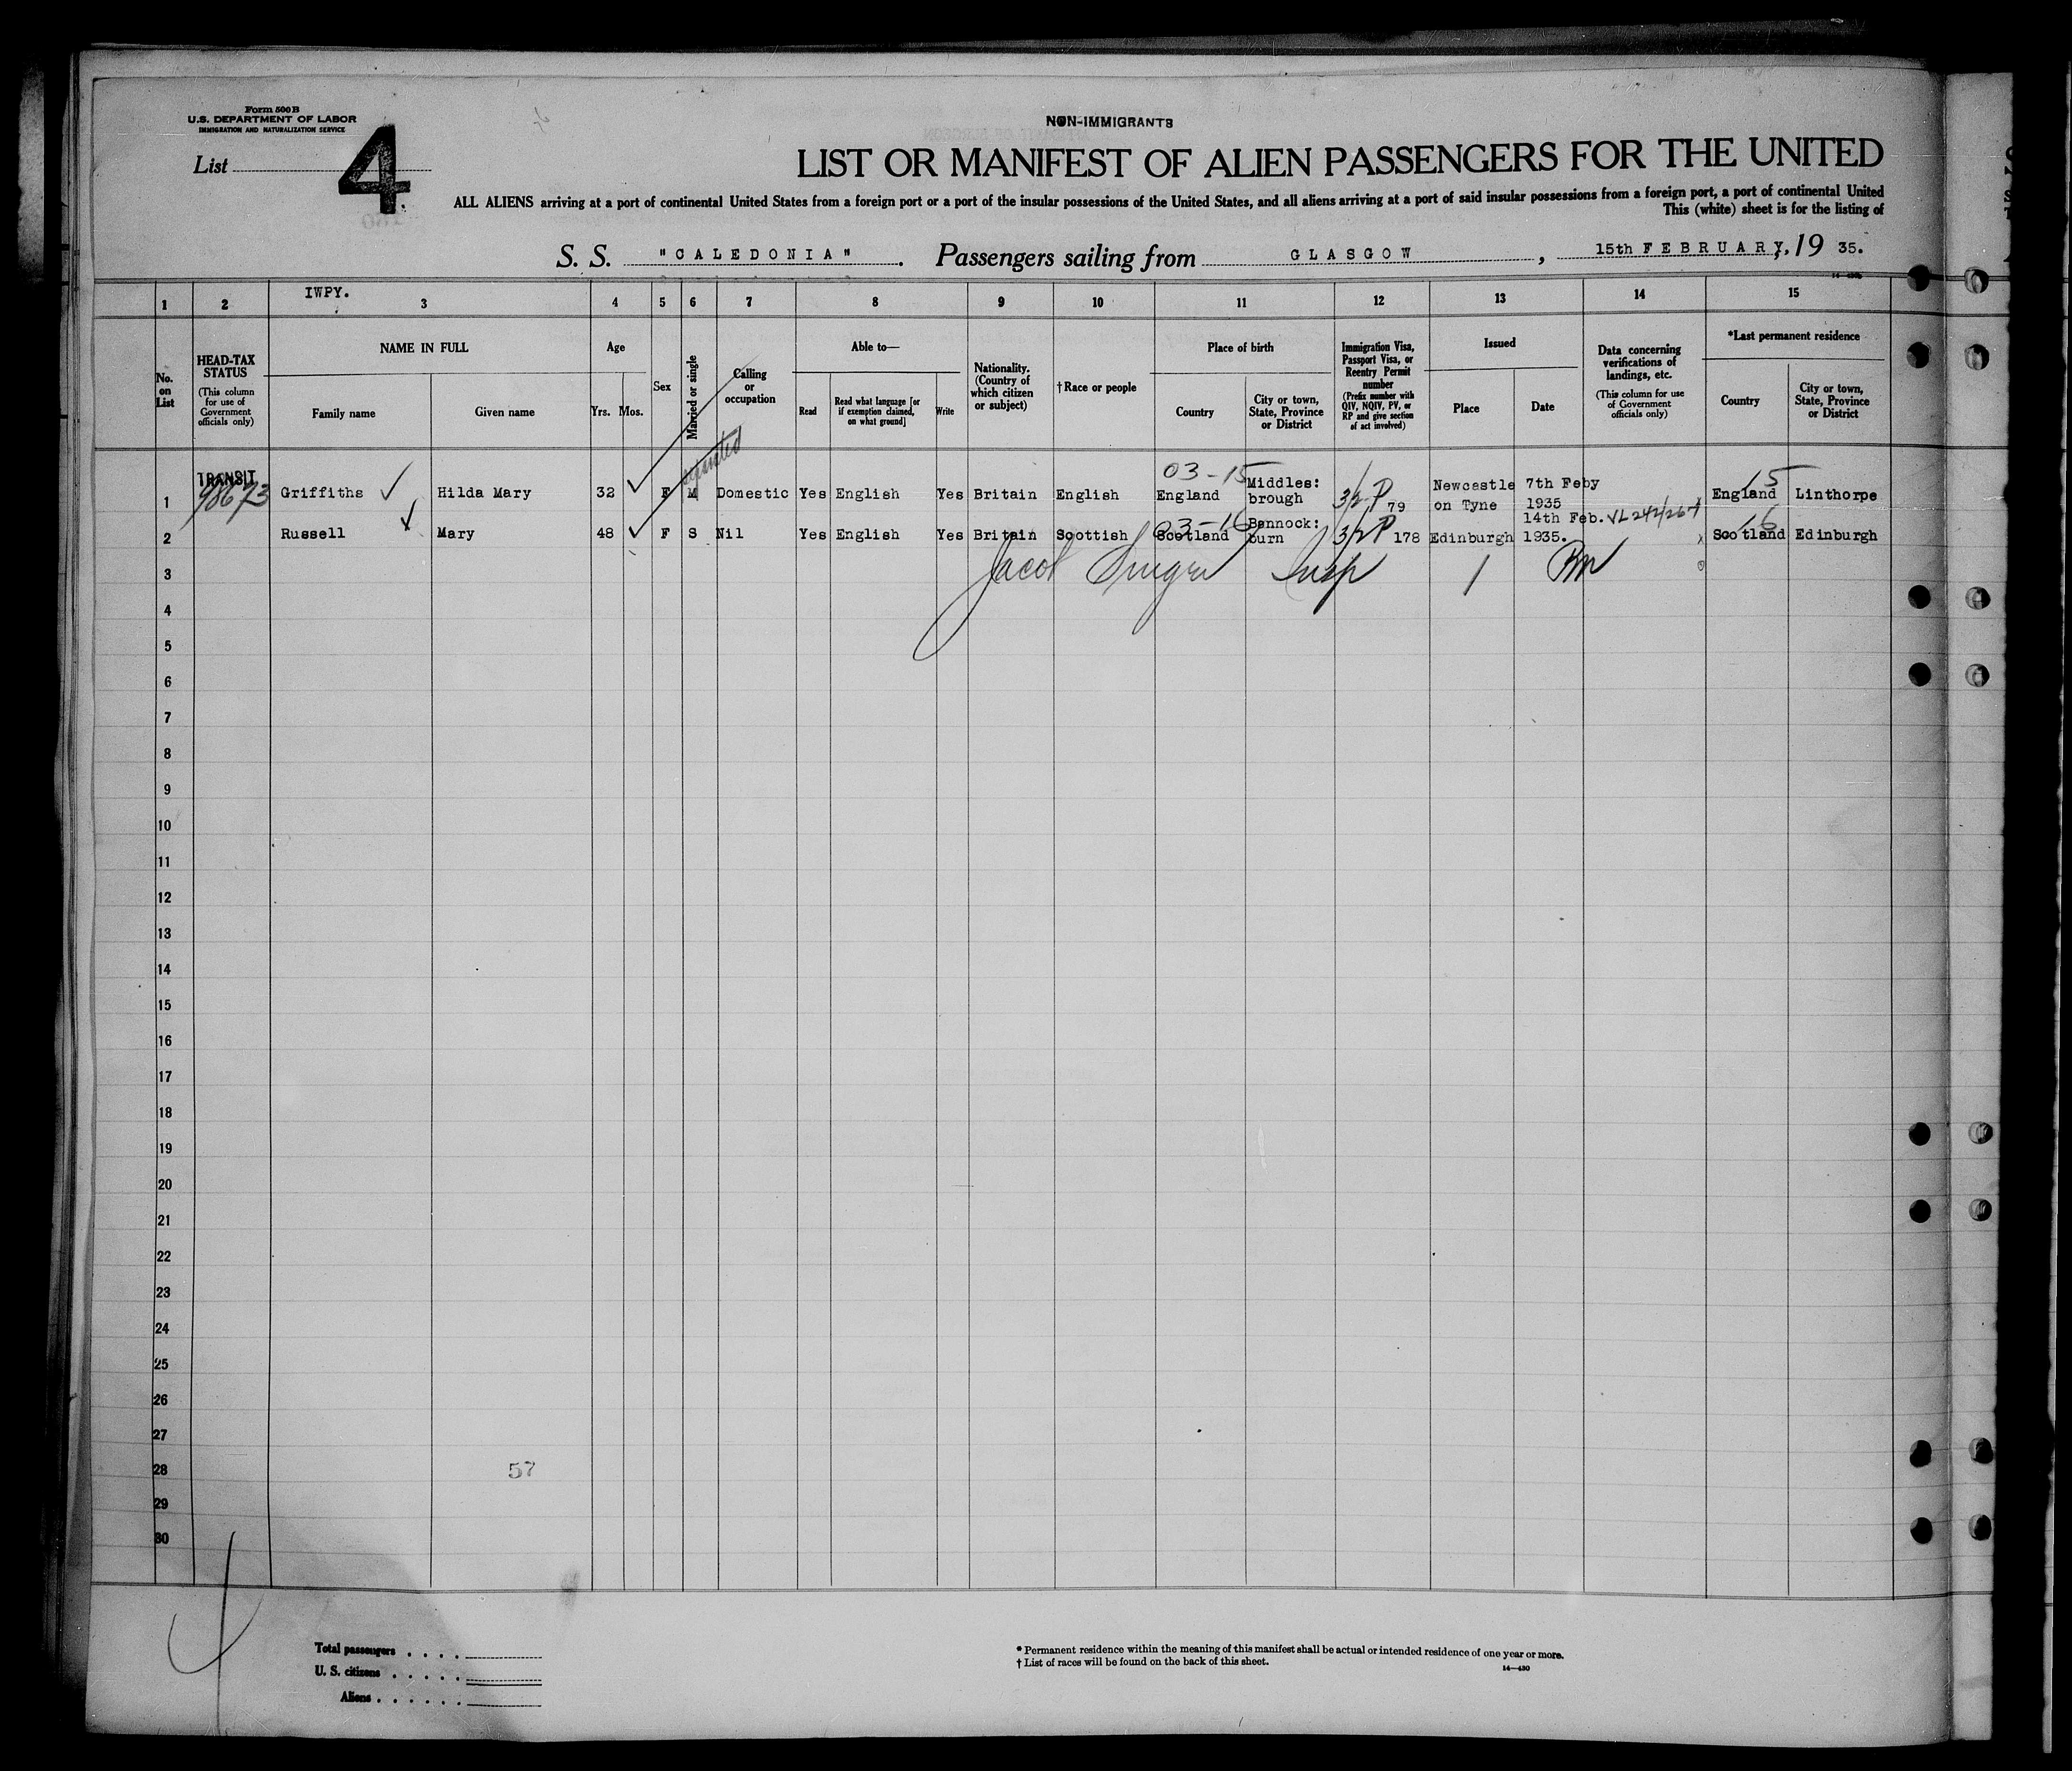 Form 500 B
U.S. DEPARTMENT OF LABOR
IMMIGRATION AND NATURALIZATION SERVICE
List 4
NON-IMMIGRANTS
LIST OR MANIFEST OF ALIEN PASSENGERS FOR THE UNITED
ALL ALIENS arriving at a port of continental United States from a foreign port or a port of the insular possessions of the United States, and all aliens arriving at a port of said insular possessions from a foreign port, a port of continental United
This (white) sheet is for the listing of
S. S. "CALEDONIA". Passengers sailing from GLASGOW, 15th FEBRUARY, 19 35.
IWPY.
1 2 3 4 5 6 7 8 9 10 11 12 13 14 15
No. on List
HEAD-TAX STATUS
(This column for use of Government officials only)
NAME IN FULL
Family name Given name
Age
Yrs. Mos.
Sex
Married or single
Calling or occupation
Able to—
Read
Read what language [or if exemption claimed, on what ground]
Write
Nationality. (Country of which citizen or subject)
†Race or people
Place of birth
Country
City or town, State, Province or District
Immigration Visa, Passport Visa, or Reentry Permit number
(Prefix number with QIV, NQIV, PV, or RP and give section of act involved)
Issued
Place Date
Data concerning verifications of landings, etc.
(This column for use of Government officials only)
*Last permanent residence
Country
City or town, State, Province or District
TRANSIT
98673
separated
03-15
15
1 Griffiths Hilda Mary 32 F M Domestic Yes English Yes Britain English England Middles: brough 3/2 P 79 Newcastle on Tyne 7th Feby 1935 England Linthorpe
03-16
16
2 Russell Mary 48 F S Nil Yes English Yes Britain Scottish Scotland Bannock: burn 3/2 P 178 Edinburgh 14th Feb. 1935. Scotland Edinburgh
Jacob Insp
3
4
5
6
7
8
9
10
11
12
13
14
15
16
17
18
19
20
21
22
23
24
25
26
27
28
57
29
30
Total passengers
U. S. citizens
Aliens
* Permanent residence within the meaning of this manifest shall be actual or intended residence of one year or more.
† List of races will be found on the back of this sheet.
14—430